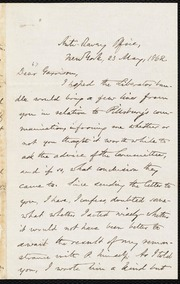 Anti-Slavery Office,
New York, 23 May, 1862.
Dear Garrison,
I hoped the Liberator bun-
dle would bring a few lines from
you in relation to Pillsbury's com-
munications informing me whether or
not you thought it worth while to
ask the advice of the Committee,
and if so, what conclusion they
came to. Since sending the letter to
you I have, I confess, doubted some-
what whether I acted wisely whether
it would not have been better to
await the result of my remon-
strance with P. himself. As I told
you, I wrote him a kind but